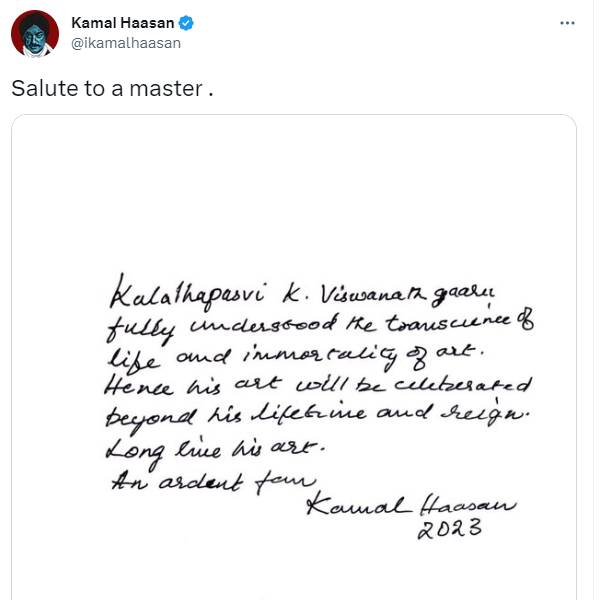 Kamal Haasan
@ikamalhaasan
Salute to a master .
Kalathapasvi K. Viswanath gaaru
fully understood the transcience of
life and immortality of art.
Hence his art will be celeberated
beyond his lifetime and reign.
Long live his art.
An ardent fan
Kamal Haasan
2023